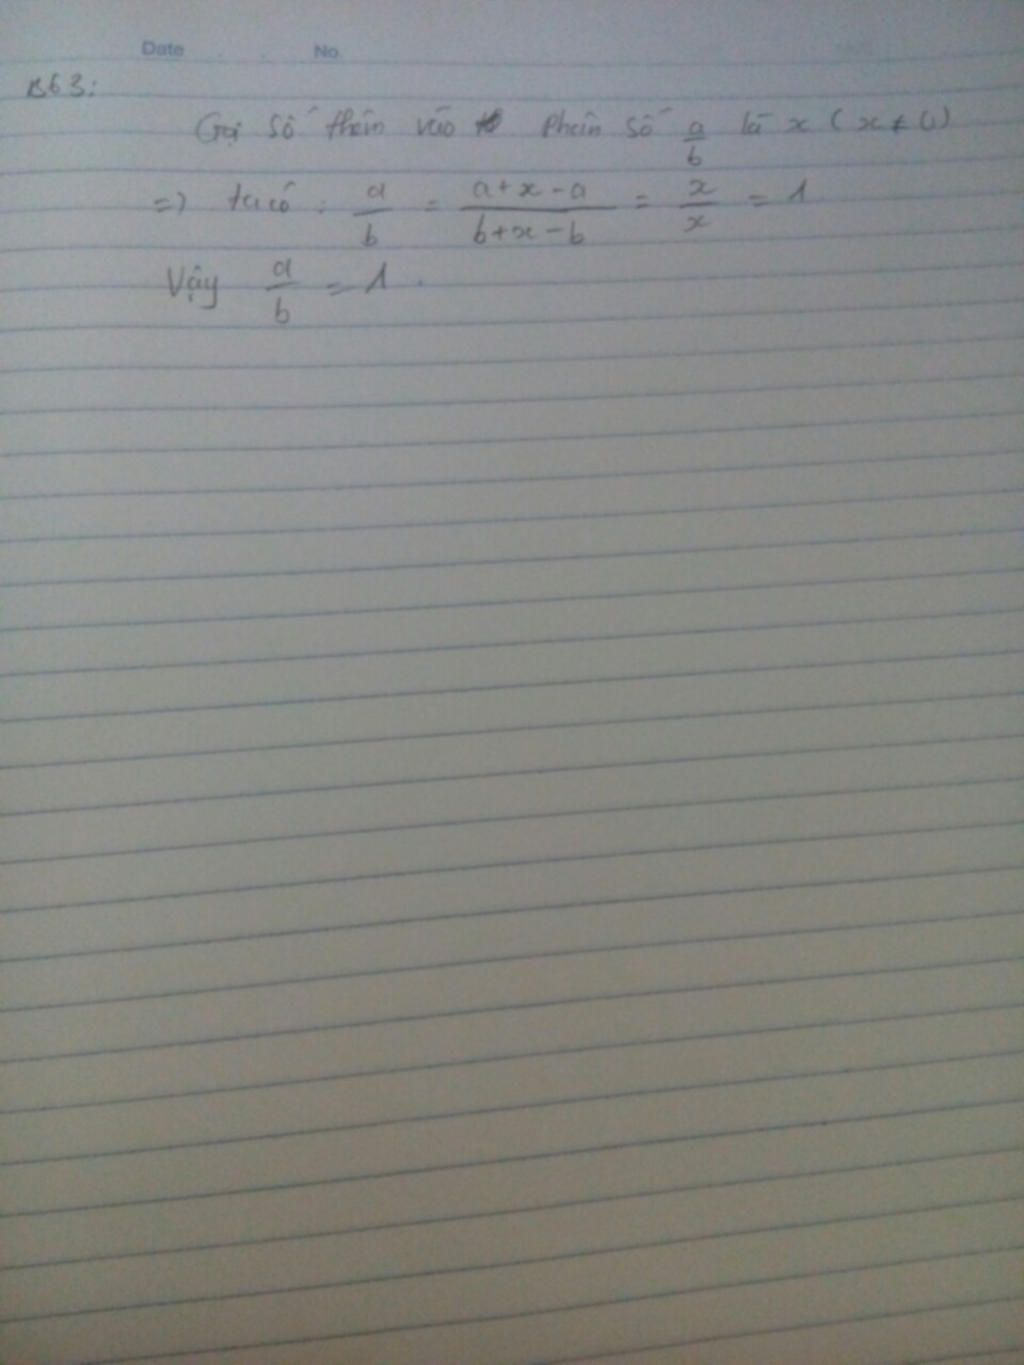 Date No.
B63:
Gọi số thêm vào phân số a/b là x (x ≠ 0)
=> ta có : a/b = a+x-a/b+x-b = x/x = 1
Vậy a/b = 1.